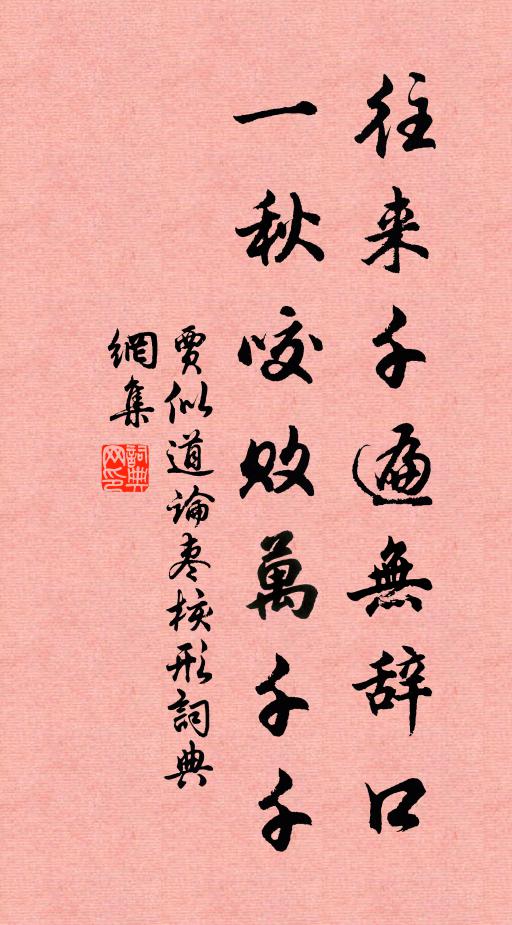 往来千遍無辞口
一秋咬败萬千千
賈似道論枣核形詞典
網集
詞典
网印